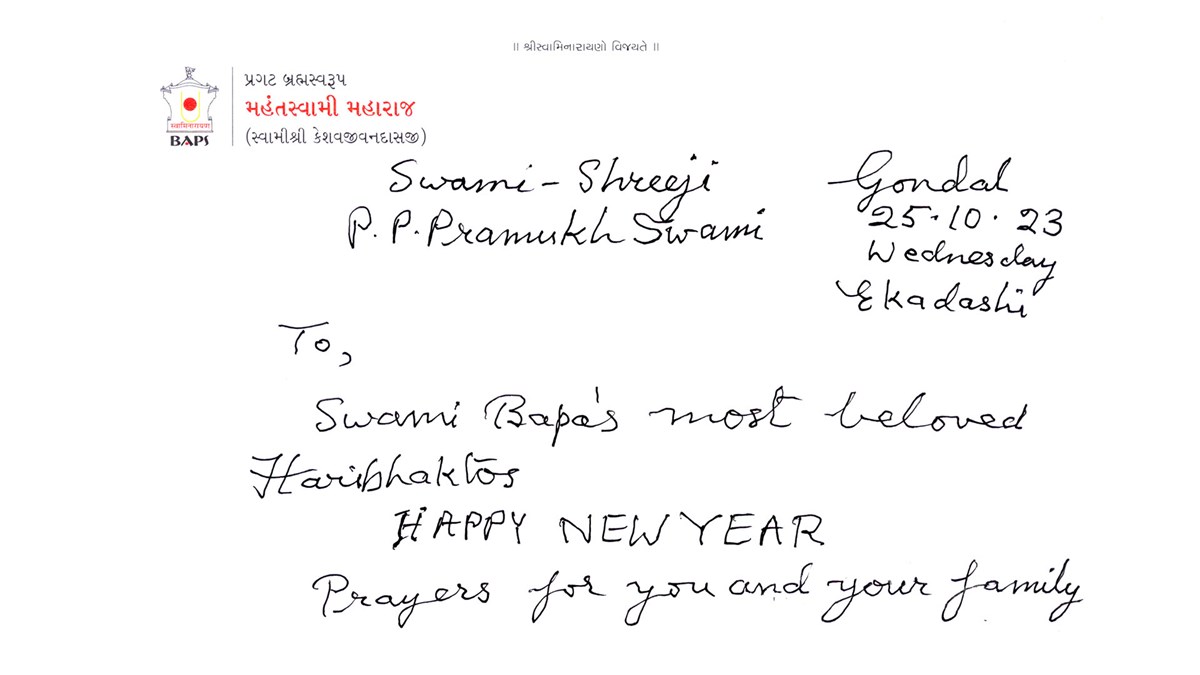 ॥ શ્રીસ્વામિનારાયણો વિજયતે ॥
પ્રગટ બ્રહ્મસ્વરૂપ
મહંતસ્વામી મહારાજ
(સ્વામીશ્રી કેશવજીવનદાસજી)
સ્વામિનારાયણ
BAPS
Swami - Shreeji
P. P. Pramukh Swami
Gondal
25.10.23
Wednesday
Ekadashi
To,
Swami Bapa's most beloved
Haribhaktos
HAPPY NEW YEAR
Prayers for you and your family